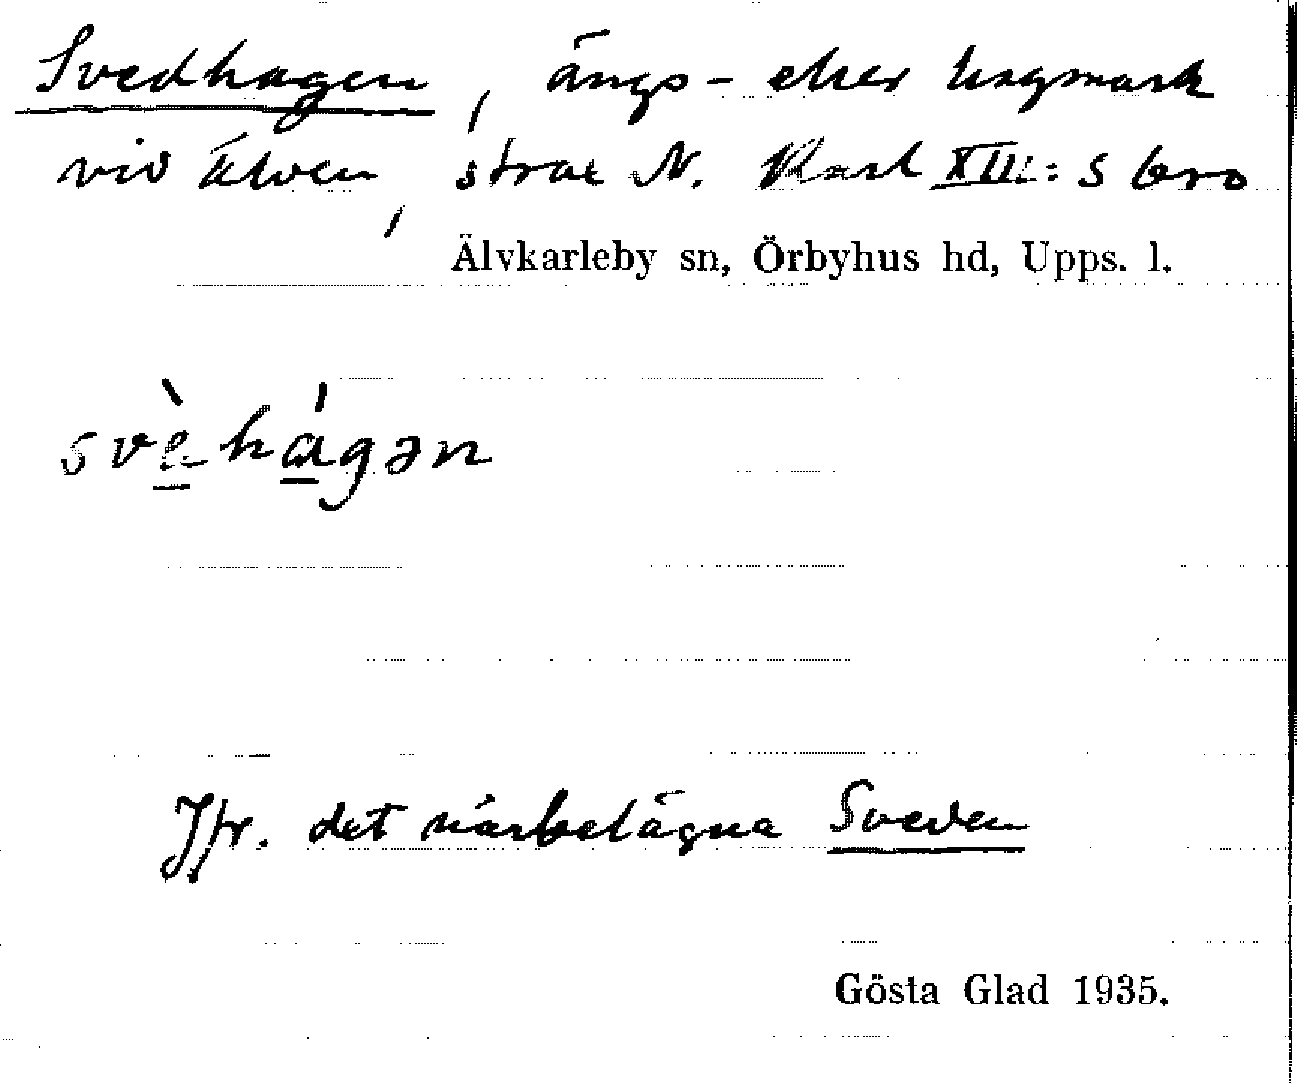 Svedhagen, ängs- eller hagmark
vid Älven, strax N. Karl XII:s bro
Älvkarleby sn, Örbyhus hd, Upps. l.
svè̱há̱gən
Jfr. det närbelägna Sveden
Gösta Glad 1935.